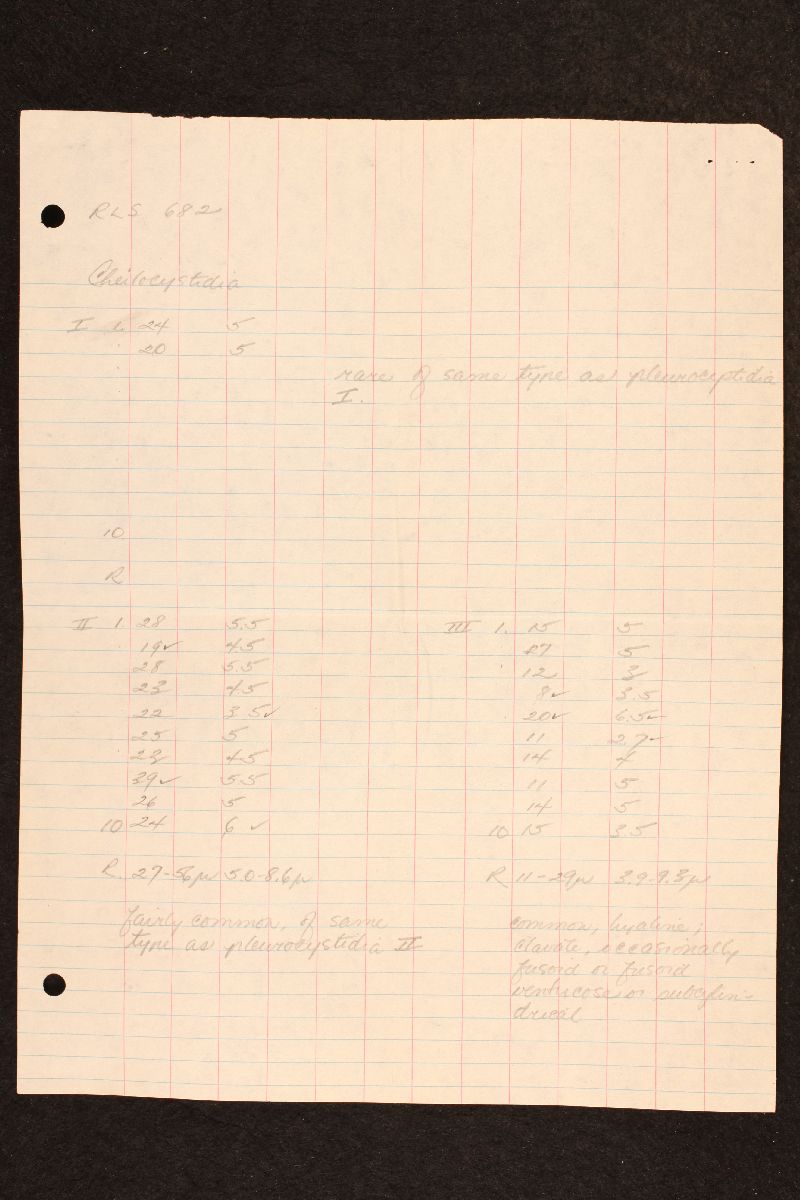 RLS 682
Cheilocystidia
I 1. 24 5
20 5
rare of same type as pleurocystidia
I.
10
R
II 1 28 5.5
19✓ 4.5
28 5.5
23 4.5
22 3.5✓
25 5
23 4.5
39✓ 5.5
26 5
10 24 6 ✓
R. 27-56µ 5.0-8.6µ
fairly common, of same
type as pleurocystidia II
III 1. 15 5
17 5
12 3
8✓ 3.5
20✓ 6.5✓
11 2.7✓
14 4
11 5
14 5
10 15 3.5
R 11-29µ 3.9-9.3µ
common, hyaline;
clavate, occasionally
fusoid or fusoid
ventricose or subcylin-
drical